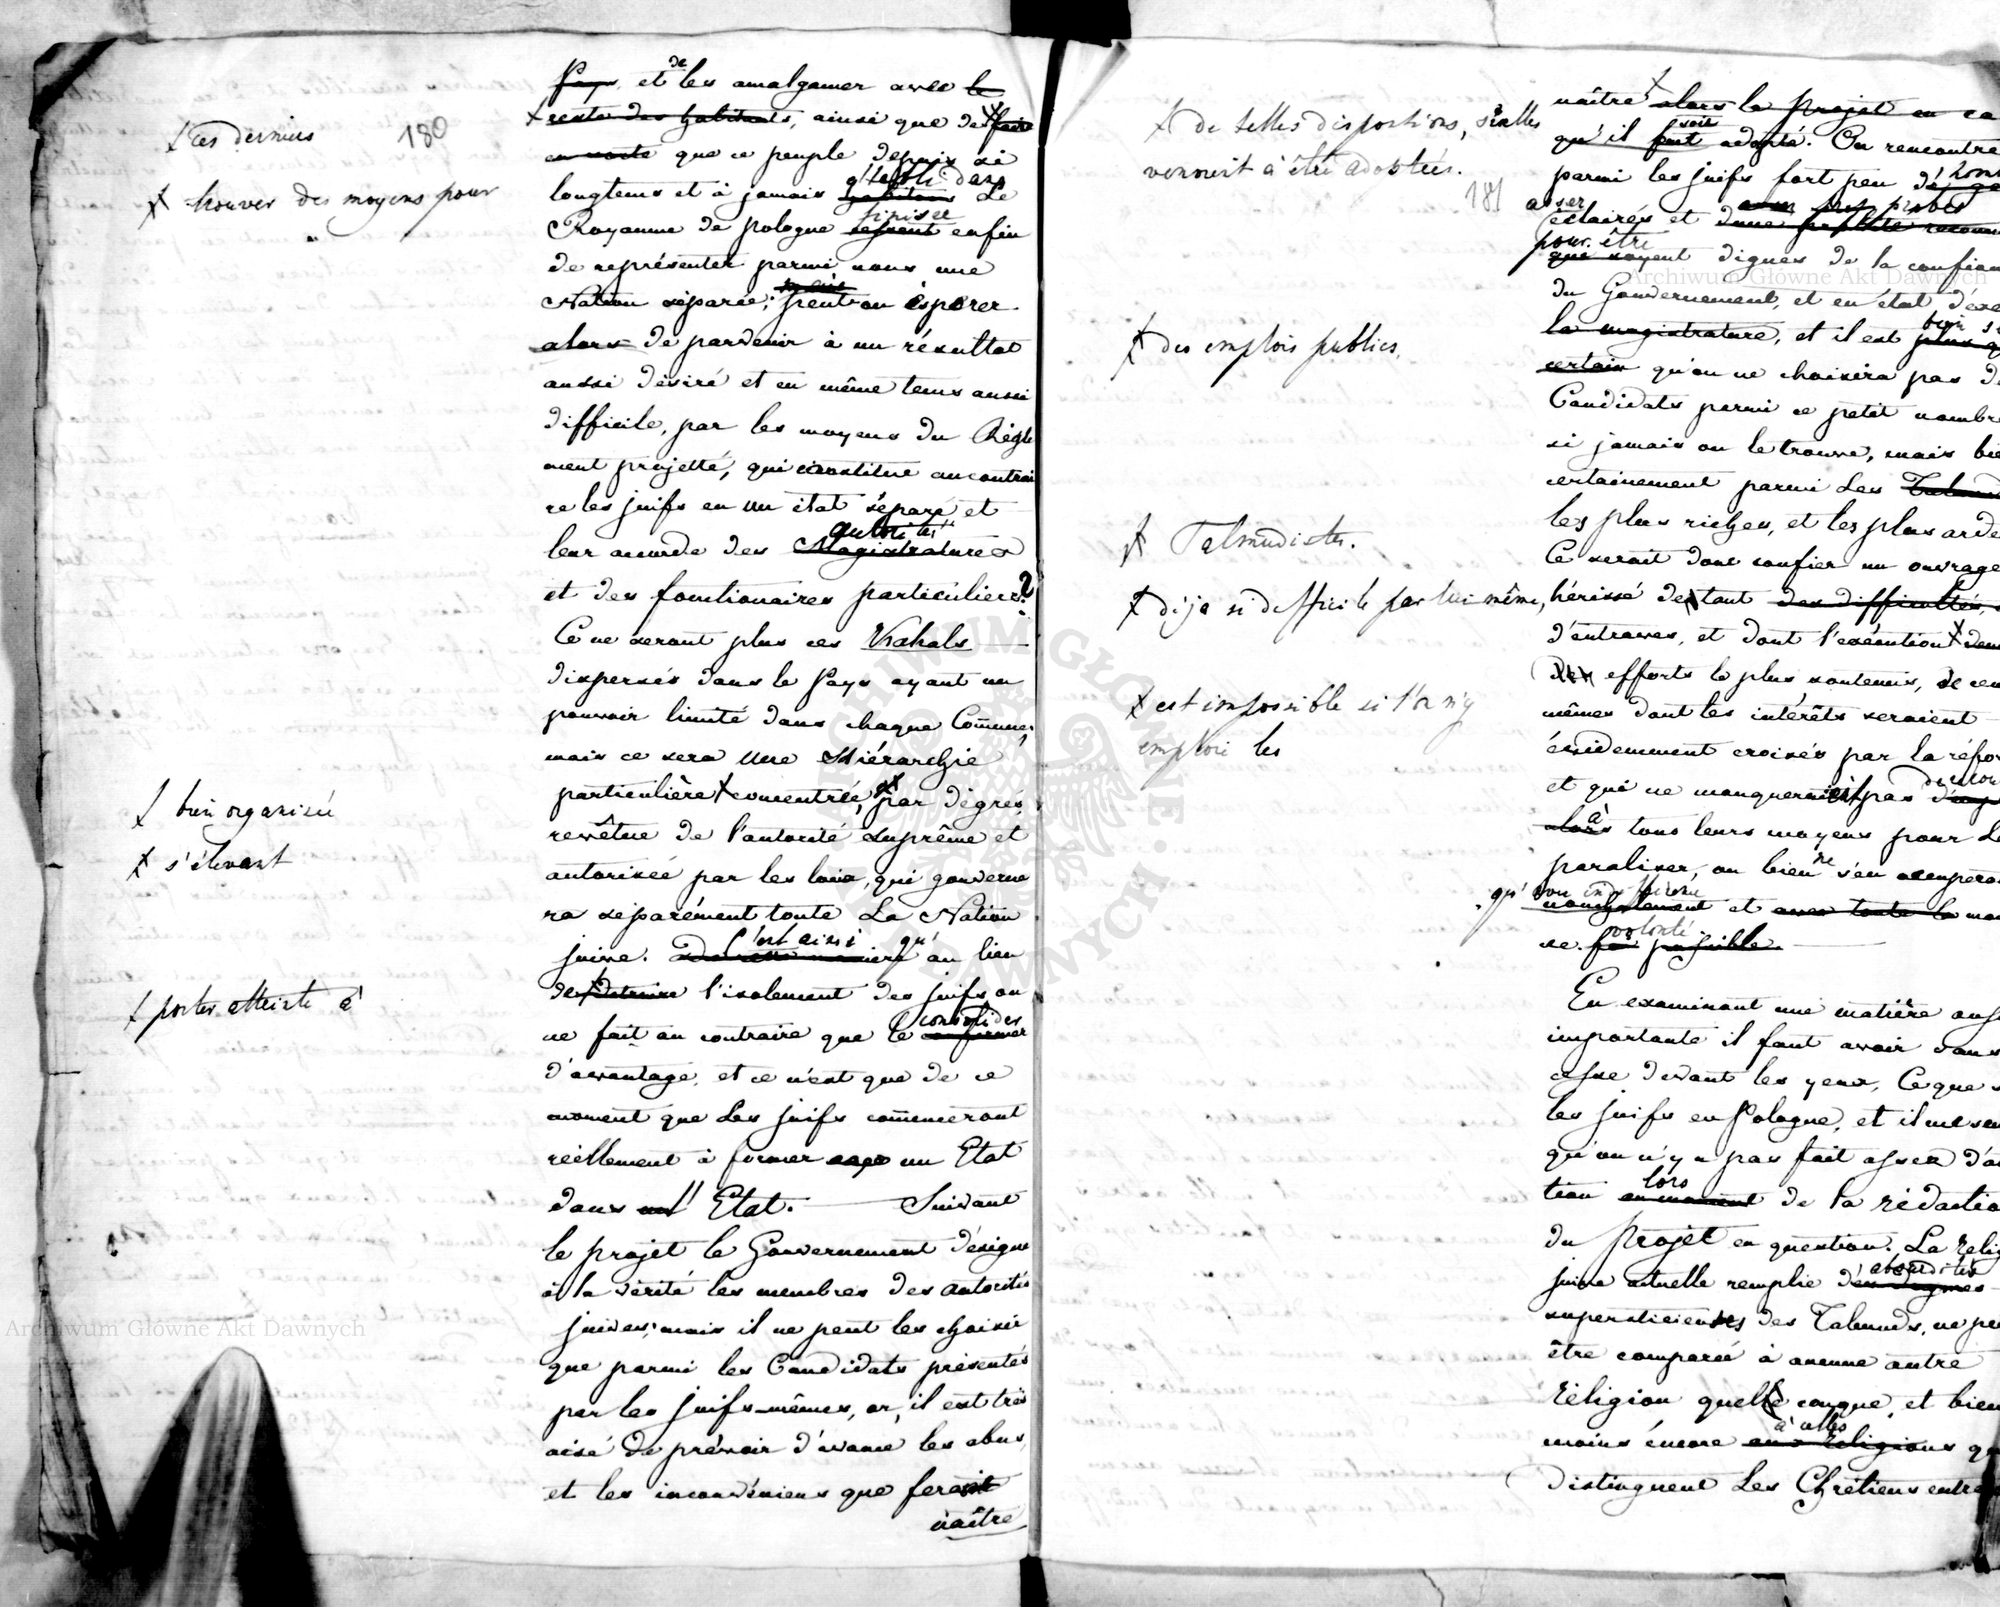 180
ces derniers
trouver des moyens pour
bien organisée
s'élevant
porter atteinte à
Pays, et de les amalgamer avec le
reste des habitants, ainsi que de faire
en sorte que ce peuple depuis si
qu'établi dans
longtems et à jamais habitans Le
finisse
Royaume de pologne cessent enfin
de représenter parmi nous une
Nation séparée; peut on ésperer
alors de parvenir à un résultat
aussi désiré et en même tems aussi
difficile, par les moyens du Règle
ment projetté, qui constitue au contrai
re les juifs en un état séparé et
autorités
leur accorde des Magistratures
et des fonctionaires particuliers?
Ce ne seront plus ces Kahals
dispersés dans le Pays ayant un
pouvoir limité dans chaque Commune,
mais ce sera une Hiérarchie
particulière concentrée, par dégrés,
revêtue de l'autorité suprême et
autorisée par les loix, qui gouverne
ra séparément toute La Nation
c'est ainsi qu'
juive. De cette manière au lieu
de détruire l'isolement des juifs, on
consolider
ne fait au contraire que le confirmer
d'avantage, et ce n'est que de ce
moment que Les juifs commenceront
réellement à former un Etat
dans un l'Etat. Suivant
le projet le Gouvernement désigne
à la vérité les membres des autorités
juives; mais il ne peut les choisir
que parmi les Candidats présentés
par les juifs-mêmes, or, il est très
aisé de prévoir d'avance les abus,
et les inconvéniens que feroit
naître
181
de telles dispositions, si elles
venoient à être adoptées.
des emplois publics,
Talmudistes.
déja si difficile par lui même,
est impossible si l'on n'y
emploie les
naître alors le projet en ca
soit
qu'il fut adopté. On rencontre
parmi les juifs fort peu
assez
probes
éclairés et d'une probité reconnue
pour être
que soyent dignes de la confian
du Gouvernement, et en état d'exe
la magistrature, et il est plus q
certain qu'on ne choisira pas de
Candidats parmi ce petit nombre
si jamais on le trouve, mais bie
certainement parmi Les
les plus riches, et les plus arde
Ce serait donc confier un ouvrage
hérissé de tant des difficultés,
d'entraves, et dont l'exécution
efforts le plus soutenus, de ceu
mêmes dont les intérêts seraient
évidemment croisés par la réfor
et qui ne manqueroient pas
à
alors tous leurs moyens pour Le
paraliser, ou bien ne s'en occuperoi
qu'
nonchalement et avec toute la mau
volonté
se possible.
En examinant une matière auss
importante il faut avoir sans
cesse devant les yeux, Ce que s
les juifs en Pologne, et il me sem
qu'on n'y a pas fait assez d'at
lors
tion au moment de la rédactio
du Projet en question. La Relig
absurdités
juive actuelle remplie des dogmes
superstitieuses des Talmuds, ne peu
être comparée à aucune autre
réligion quelconque, et bien
à celles
moins éncore aux Religions qu
distinguent Les Chrétiens entre